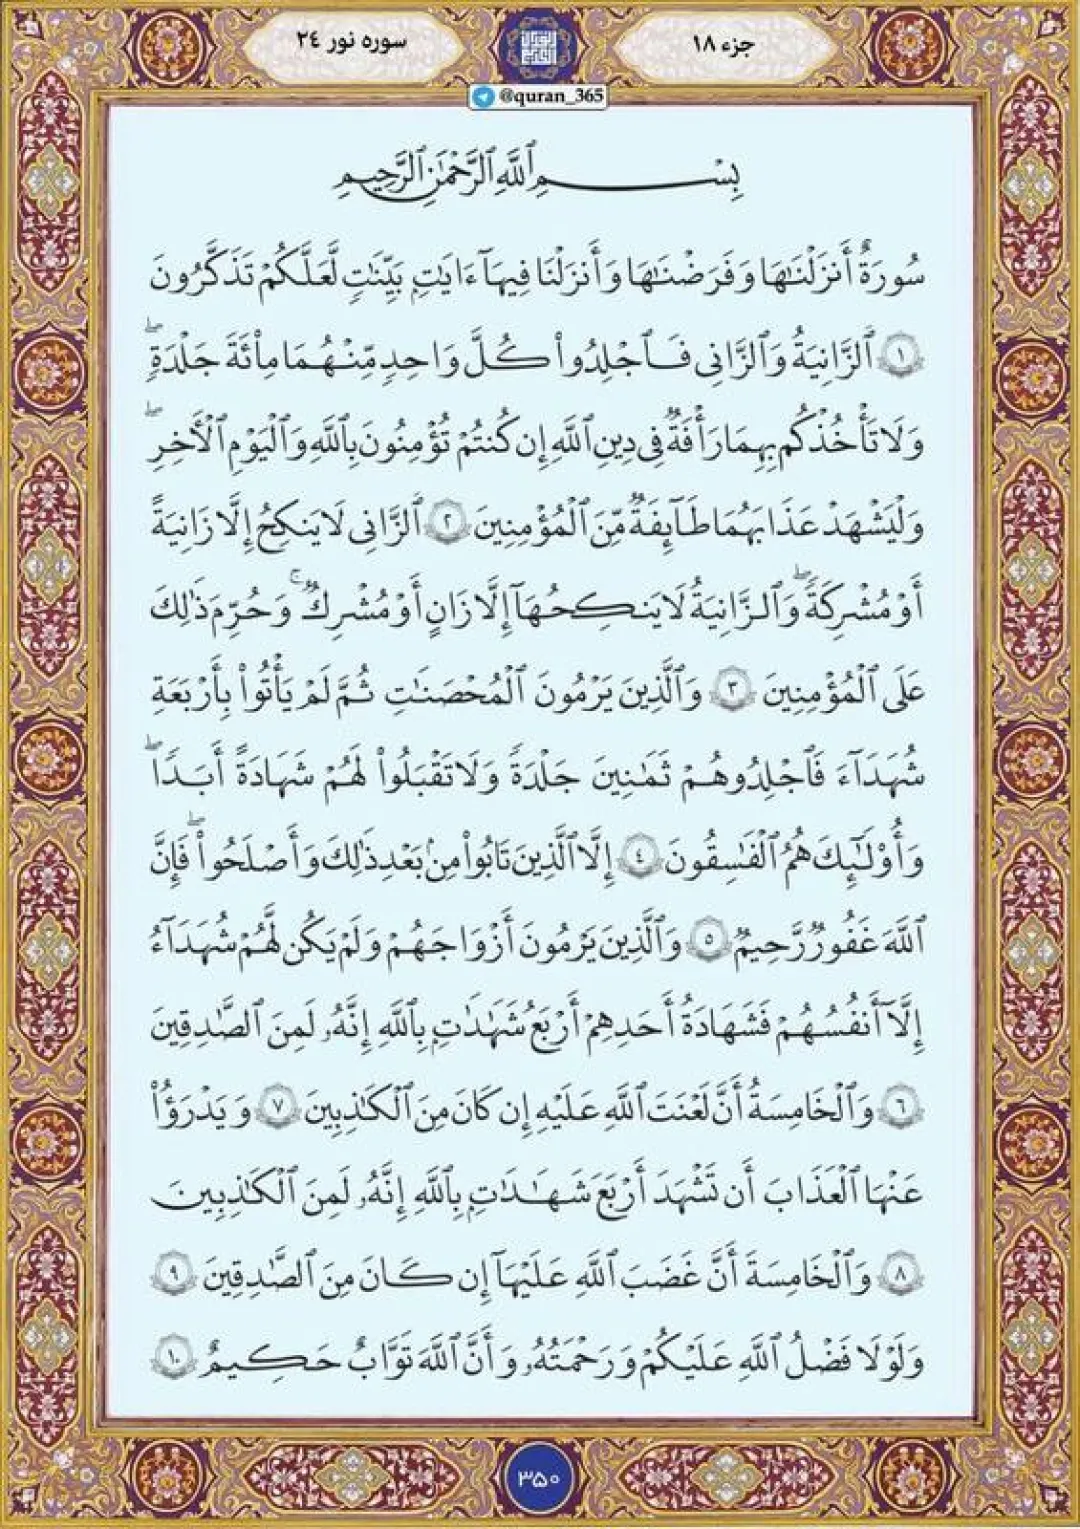 جزء ۱۸
سوره نور ۲٤
@quran_365
بِسْمِ ٱللَّهِ ٱلرَّحْمَٰنِ ٱلرَّحِيمِ
سُورَةٌ أَنزَلْنَٰهَا وَفَرَضْنَٰهَا وَأَنزَلْنَا فِيهَآ ءَايَٰتٍۭ بَيِّنَٰتٍ لَّعَلَّكُمْ تَذَكَّرُونَ
۱ ٱلزَّانِيَةُ وَٱلزَّانِى فَٱجْلِدُوا۟ كُلَّ وَٰحِدٍ مِّنْهُمَا مِا۟ئَةَ جَلْدَةٍۖ
وَلَا تَأْخُذْكُم بِهِمَا رَأْفَةٌ فِى دِينِ ٱللَّهِ إِن كُنتُمْ تُؤْمِنُونَ بِٱللَّهِ وَٱلْيَوْمِ ٱلْـَٔاخِرِۖ
وَلْيَشْهَدْ عَذَابَهُمَا طَآئِفَةٌ مِّنَ ٱلْمُؤْمِنِينَ ۲ ٱلزَّانِى لَا يَنكِحُ إِلَّا زَانِيَةً
أَوْ مُشْرِكَةًۖ وَٱلزَّانِيَةُ لَا يَنكِحُهَآ إِلَّا زَانٍ أَوْ مُشْرِكٌۚ وَحُرِّمَ ذَٰلِكَ
عَلَى ٱلْمُؤْمِنِينَ ۳ وَٱلَّذِينَ يَرْمُونَ ٱلْمُحْصَنَٰتِ ثُمَّ لَمْ يَأْتُوا۟ بِأَرْبَعَةِ
شُهَدَآءَ فَٱجْلِدُوهُمْ ثَمَٰنِينَ جَلْدَةً وَلَا تَقْبَلُوا۟ لَهُمْ شَهَٰدَةً أَبَدًاۖ
وَأُو۟لَٰٓئِكَ هُمُ ٱلْفَٰسِقُونَ ٤ إِلَّا ٱلَّذِينَ تَابُوا۟ مِنۢ بَعْدِ ذَٰلِكَ وَأَصْلَحُوا۟ۖ فَإِنَّ
ٱللَّهَ غَفُورٌ رَّحِيمٌ ٥ وَٱلَّذِينَ يَرْمُونَ أَزْوَٰجَهُمْ وَلَمْ يَكُن لَّهُمْ شُهَدَآءُ
إِلَّآ أَنفُسُهُمْ فَشَهَٰدَةُ أَحَدِهِمْ أَرْبَعُ شَهَٰدَٰتٍۭ بِٱللَّهِ إِنَّهُۥ لَمِنَ ٱلصَّٰدِقِينَ
٦ وَٱلْخَٰمِسَةُ أَنَّ لَعْنَتَ ٱللَّهِ عَلَيْهِ إِن كَانَ مِنَ ٱلْكَٰذِبِينَ ۷ وَيَدْرَؤُا۟
عَنْهَا ٱلْعَذَابَ أَن تَشْهَدَ أَرْبَعَ شَهَٰدَٰتٍۭ بِٱللَّهِ إِنَّهُۥ لَمِنَ ٱلْكَٰذِبِينَ
۸ وَٱلْخَٰمِسَةَ أَنَّ غَضَبَ ٱللَّهِ عَلَيْهَآ إِن كَانَ مِنَ ٱلصَّٰدِقِينَ ۹
وَلَوْلَا فَضْلُ ٱللَّهِ عَلَيْكُمْ وَرَحْمَتُهُۥ وَأَنَّ ٱللَّهَ تَوَّابٌ حَكِيمٌ ۱۰
۳۵۰